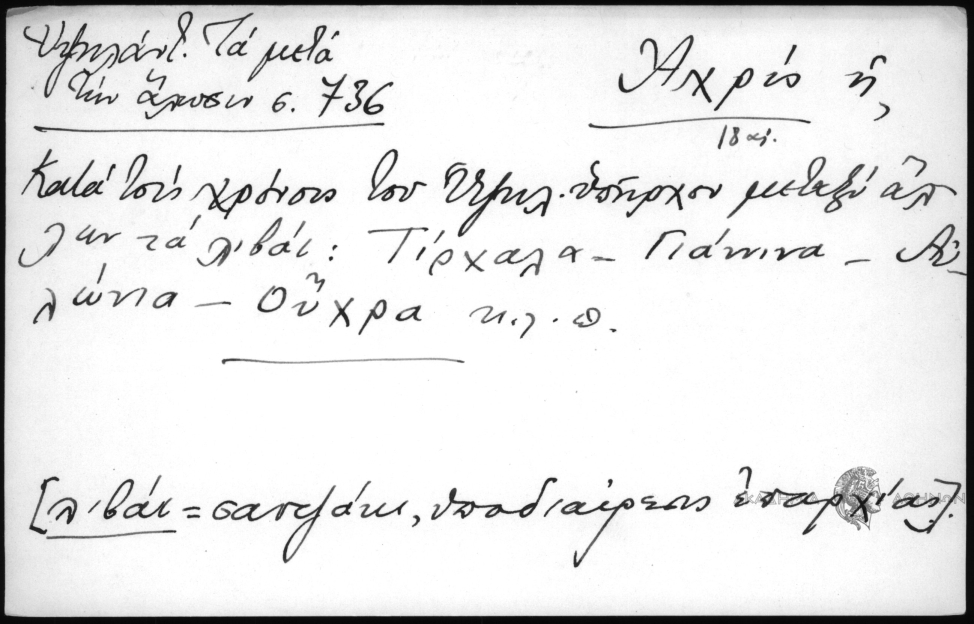 Ὑψηλάντ. Τά μετά
τήν ἅλωσιν σ. 736
Ἀχρίς ἡ,
18 αἰ.
Κατά τούς χρόνους του Ὑψηλ. ὑπῆρχον μεταξύ ἄλ
λων τά λιβάι: Τίρχαλα – Γιάννινα – Αὐ
λώνια – Οὔχρα κ.λ.π.
[λιβάι = σαντζάκι, ὑποδιαίρεσις ἐπαρχίας].
ΑΘΗΝΩΝ